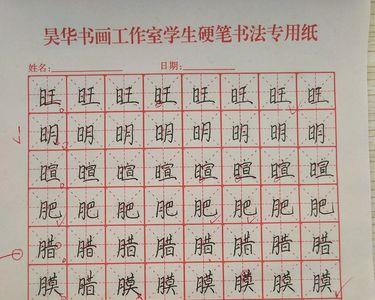 昊华书画工作室学生硬笔书法专用纸
姓名: 日期:
旺 旺 旺 旺 旺 旺 旺 旺
明 明 明 明 明 明 明 明
暄 暄 暄 暄 暄 暄 暄 暄
肥 肥 肥 肥 肥 肥 肥 肥
腊 腊 腊 腊 腊 腊 腊 腊
膜 膜 膜 膜 膜 膜 膜 膜